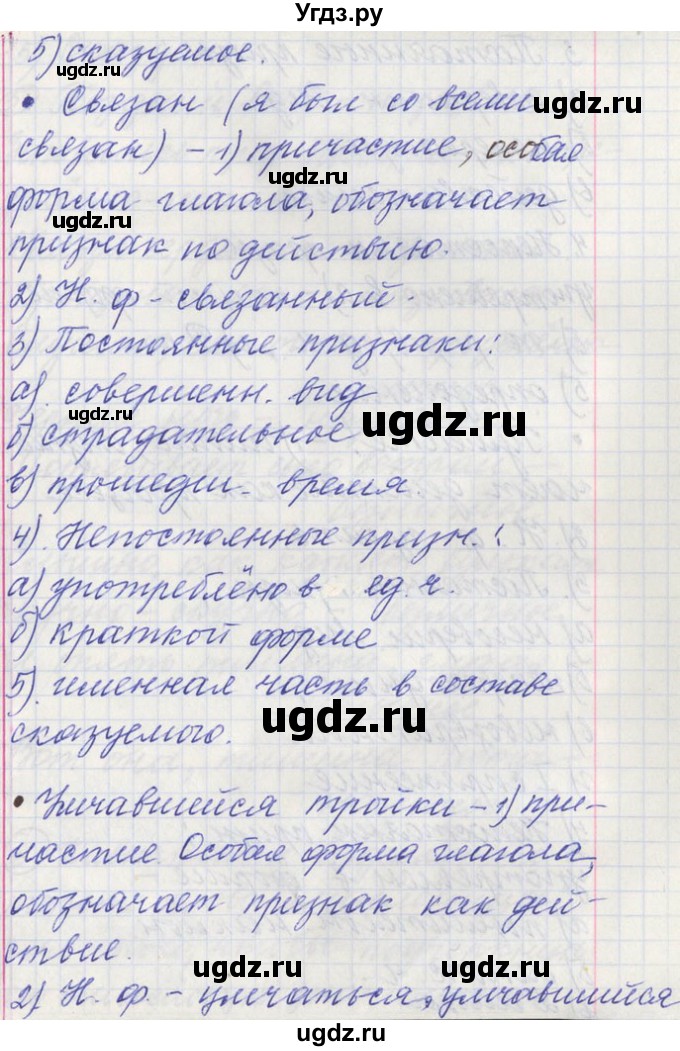 Угdз.ру
5) сказуемое.
ugdz.ru
• Связан (я был со всеми
ugdz.ru
связан) – 1) причастие, особая
ugdz.ru
форма глагола, обозначает
ugdz.ru
признак по действию.
2) Н. ф – связанный.
3) Постоянные признаки:
а) совершенн. вид
ugdz.ru
ugdz.ru
б) страдательное
в) прошедш. время.
4). Непостоянные призн.:
а) употреблёно в ед. ч.
б) краткой форме
5). именная часть в составе
ugdz.ru
сказуемого.
• Умчавшейся тройки – 1) при-
частие. Особая форма глагола,
обозначает признак как дей-
ствие.
ugdz.ru
ugdz.ru
2) Н. ф. – умчаться, умчавшийся
ugdz.ru